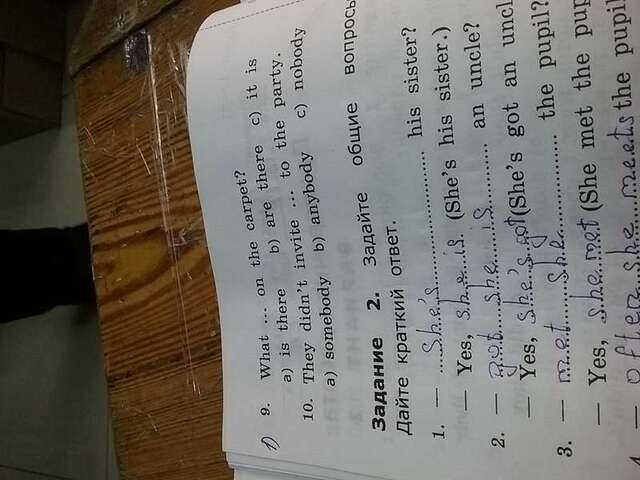 9. What ... on the carpet?
a) is there b) are there c) it is
10. They didn't invite ... to the party.
a) somebody b) anybody c) nobody
Задание 2. Задайте общие вопросы
Дайте краткий ответ.
1. — she's his sister?
— Yes, she is (She's his sister.)
2. — got she is an uncle?
— Yes, she's got (She's got an uncl
3. — met she the pupil?
— Yes, she met (She met the pup
4 — often she meets the pupil